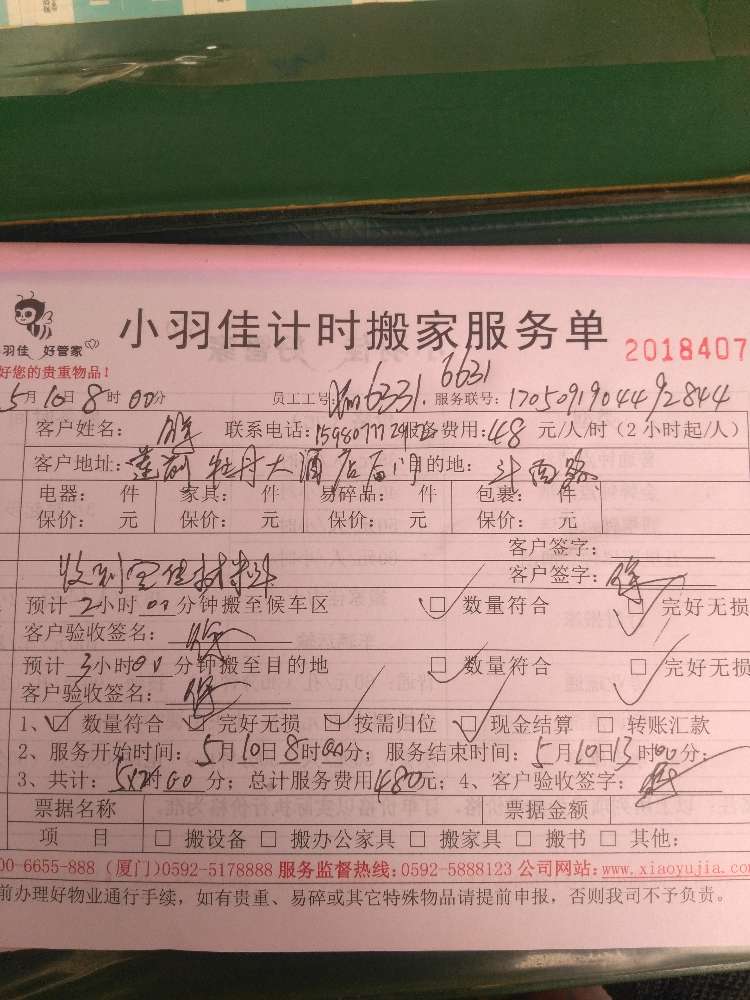 羽佳 好管家
小羽佳计时搬家服务单
2018407
好您的贵重物品!
5月10日8时00分 员工工号: 6331. 6631 服务联号: 1705091904492844
客户姓名: 联系电话: 服务费用:48 元/人/时(2小时起/人)
客户地址:莲前牡丹大酒店后门 目的地: 斗西路
电器: 件 家具: 件 易碎品: 件 包裹: 件
保价: 元 保价: 元 保价: 元 保价: 元
客户签字:
收到 材料 客户签字:
预计 2小时 00分钟搬至候车区 □ 数量符合 □ 完好无损
客户验收签名:
预计 3小时00分钟搬至目的地 □ 数量符合 □ 完好无损
客户验收签名:
1、□ 数量符合 □ 完好无损 □ 按需归位 □ 现金结算 □ 转账汇款
2、服务开始时间: 5月10日8时00分; 服务结束时间: 5月10日13时00分;
3、共计: 5x2时00分; 总计服务费用480元; 4、客户验收签字:
票据名称 票据金额
项 目 □ 搬设备 □ 搬办公家具 □ 搬家具 □ 搬书 □ 其他:
00-6655-888 (厦门)0592-5178888 服务监督热线:0592-5888123 公司网站:www.xiaoyujia.com
前办理好物业通行手续，如有贵重、易碎或其它特殊物品请提前申报，否则我司不予负责。